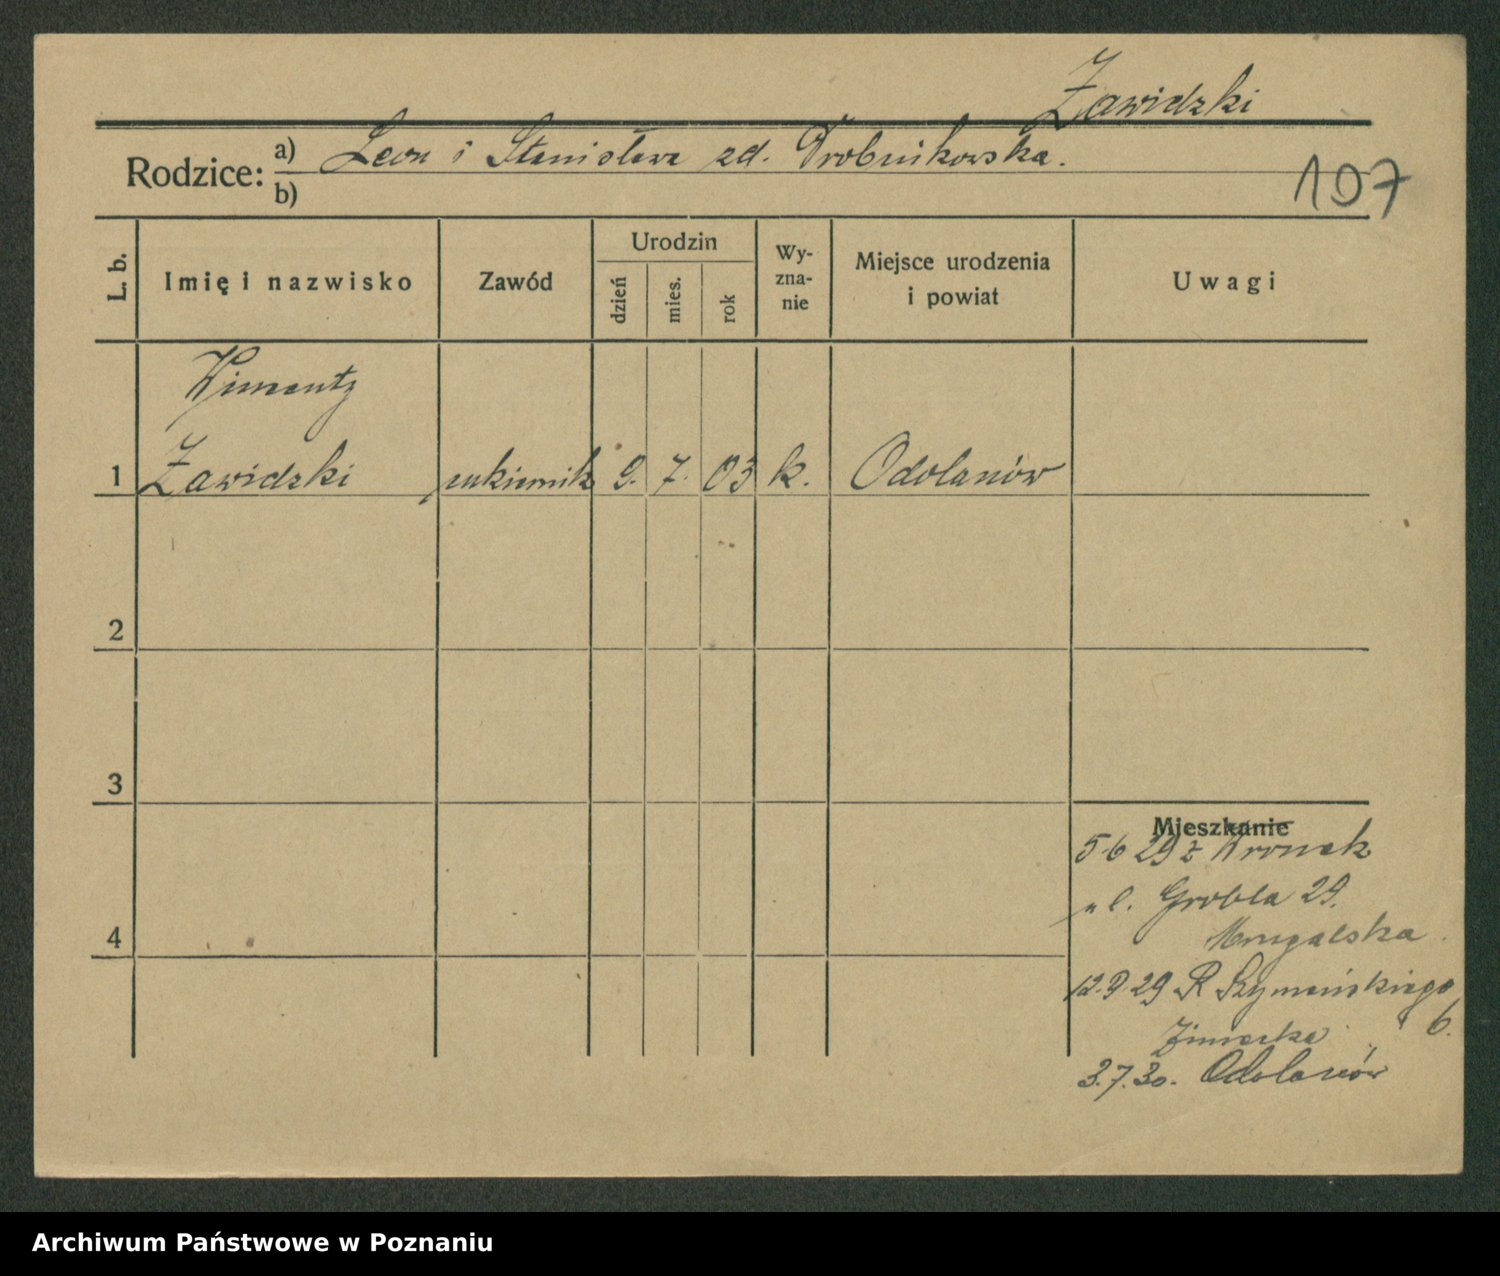 Zawidzki
Rodzice: a) Leon i Stanisława zd. Drobnikowska.
b)
107
L. b.
Imię i nazwisko
Zawód
Urodzin
dzień
mies.
rok
Wy-
zna-
nie
Miejsce urodzenia
i powiat
Uwagi
1
Zawidzki
cukiernik 9. 7. 03 k. Odolanów
2
3
4
Mieszkanie
5 6 29 z Wronek
ul. Grobla 29.
12.9.29 R Szymańskiego
6.
3.7.30. Odolanów
Archiwum Państwowe w Poznaniu